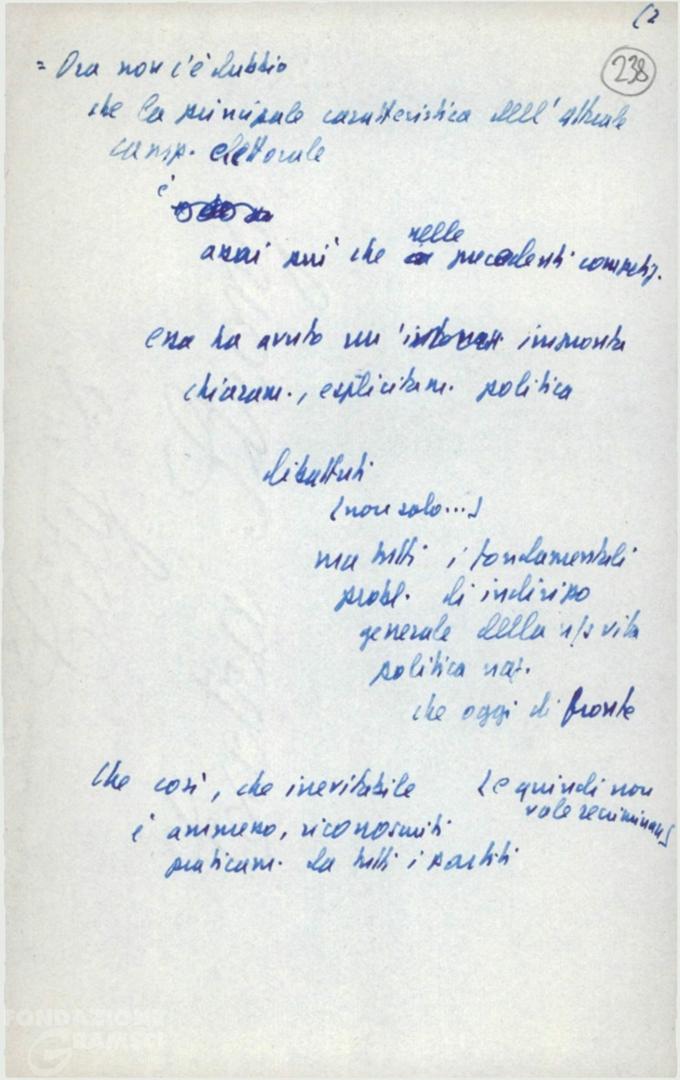 (2
238
= Ora non c'è dubbio
che la principale caratteristica dell'attuale
camp. elettorale
è
assai più che nelle precedenti competiz.
essa ha avuto un' impronta
chiaram., esplicitam. politica
dibattuti
(non solo...)
ma tutti i fondamentali
probl. di indirizzo
generale della n/s vita
politica naz.
che oggi di fronte
Che così, che inevitabile (e quindi non
vale recriminare)
è ammesso, riconosciuti
praticam. da tutti i partiti
FONDAZIONE
GRAMSCI